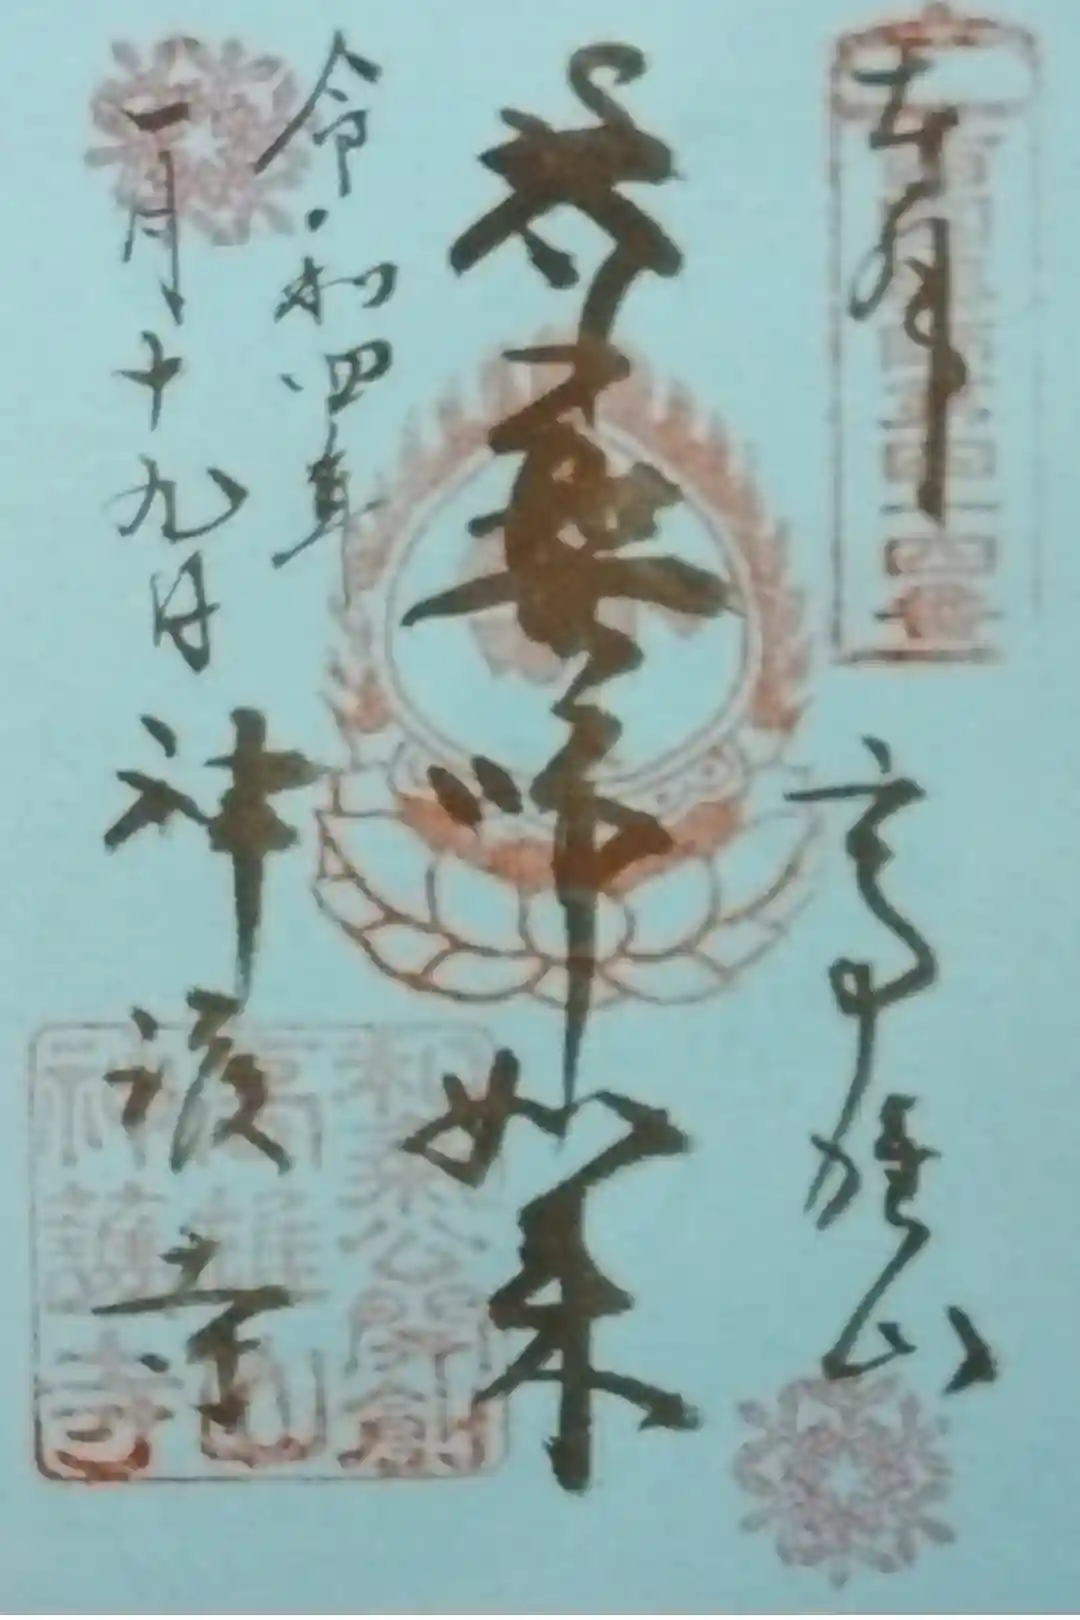 奉拝
高雄山
薬師如来
令和四年
一月十九日
神護寺
高雄山
神護寺